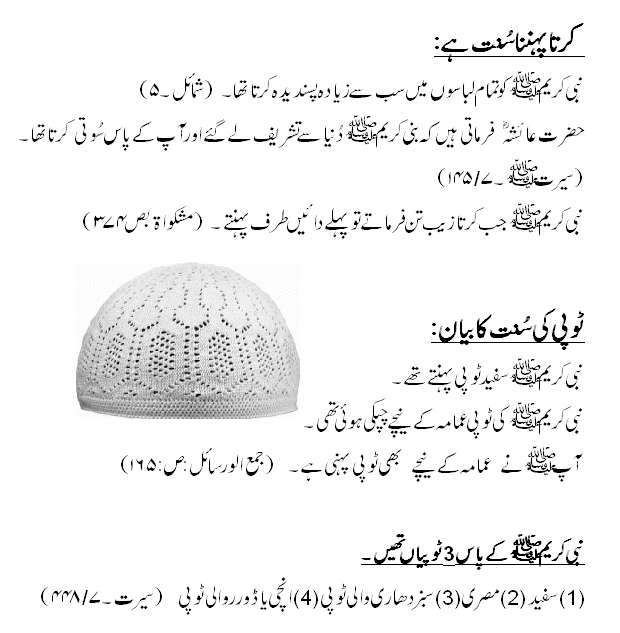 کرتا پہننا سُنت ہے:
نبی کریم ﷺ کو تمام لباسوں میں سب سے زیادہ پسندیدہ کرتا تھا۔ (شمائل۔۵)
حضرت عائشہؓ فرماتی ہیں کہ بنی کریم ﷺ دُنیا سے تشریف لے گئے اور آپ کے پاس سُوتی کرتا تھا۔
(سیرت ﷺ۔۱۴۵/۷)
نبی کریم ﷺ جب کرتا زیب تن فرماتے تو پہلے دائیں طرف پہنتے۔ (مشکواۃ بص ۳۷۴)
ٹوپی کی سُنت کا بیان:
نبی کریم ﷺ سفید ٹوپی پہنتے تھے۔
نبی کریم ﷺ کی ٹوپی عمامہ کے نیچے چپکی ہوئی تھی۔
آپ ﷺ نے عمامہ کے نیچے بھی ٹوپی پہنی ہے۔ (جمع الورسائل :ص:۱۶۵)
نبی کریم ﷺ کے پاس 3 ٹوپیاں تھیں۔
(1) سفید (2) مصری (3) سبز دھاری والی ٹوپی (4) انچی یا ڈورر والی ٹوپی (سیرت۔۴۴۸/۷)